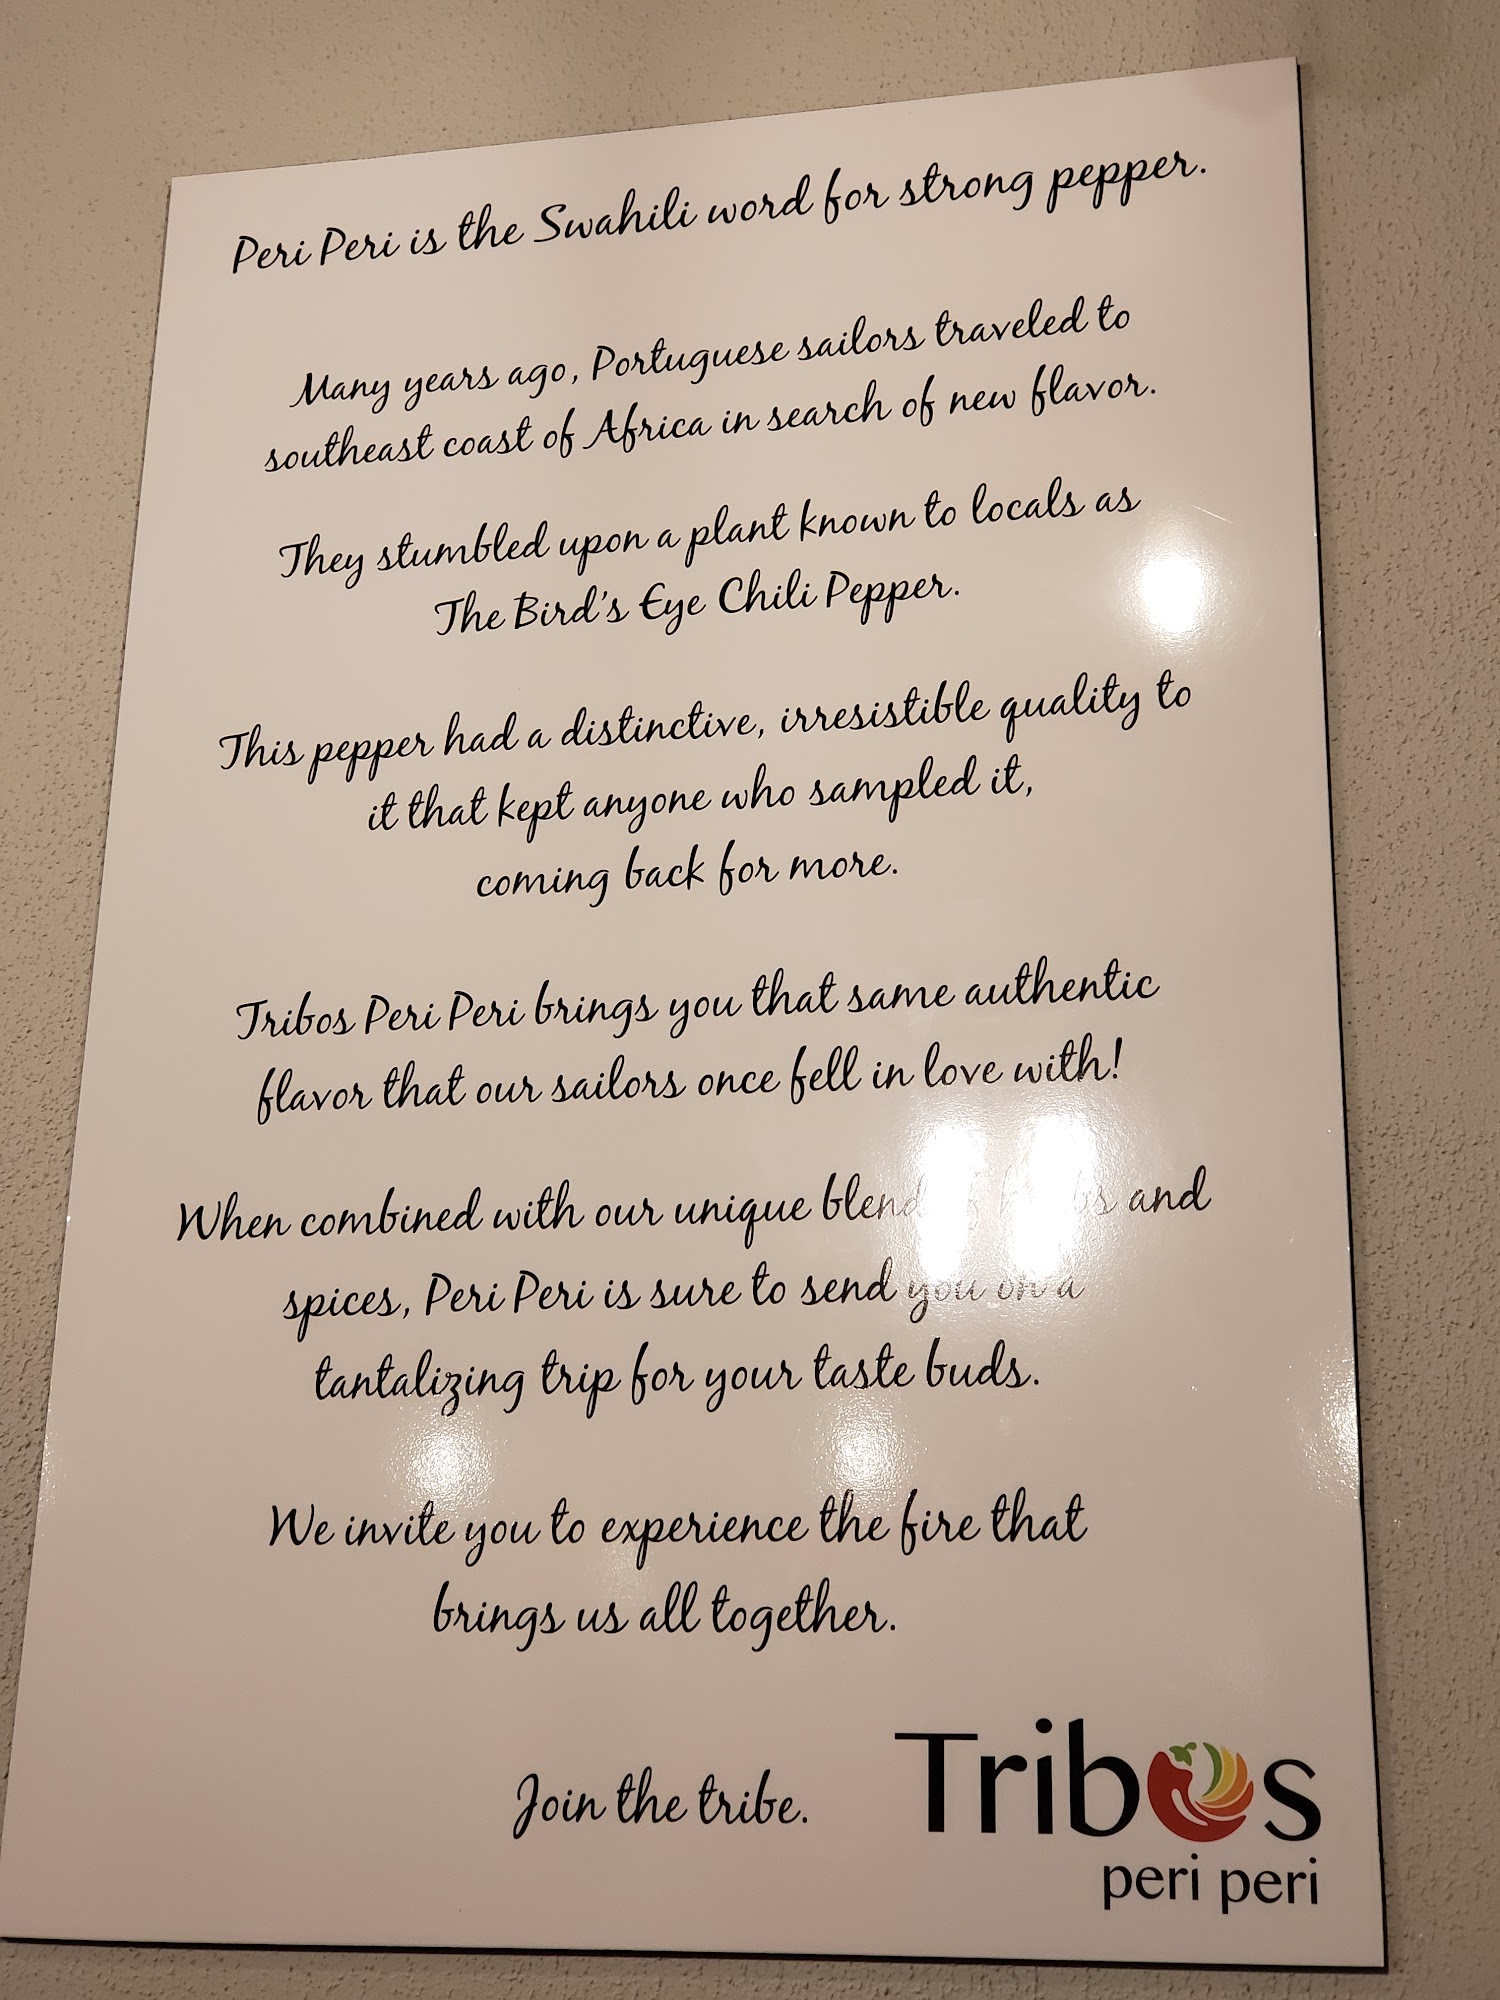 Peri Peri is the Swahili word for strong pepper.
Many years ago, Portuguese sailors traveled to
southeast coast of Africa in search of new flavor.
They stumbled upon a plant known to locals as
The Bird's Eye Chili Pepper.
This pepper had a distinctive, irresistible quality to
it that kept anyone who sampled it,
coming back for more.
Tribos Peri Peri brings you that same authentic
flavor that our sailors once fell in love with!
When combined with our unique blend of herbs and
spices, Peri Peri is sure to send you on a
tantalizing trip for your taste buds.
We invite you to experience the fire that
brings us all together.
Join the tribe.
Tribos
peri peri